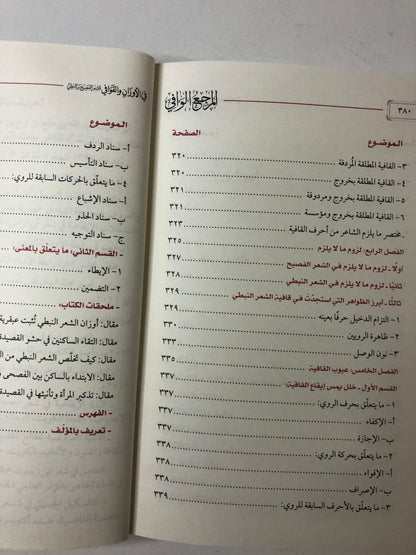 ٣٨٠
المرجع الوافي
الموضوع
الصفحة
٣- القافية المطلقة المُردفة ٣٢٠
٤- القافية المطلقة بخروج ٣٢٠
٥- القافية المطلقة بخروج ومردوفة ٣٢١
٦- القافية المطلقة بخروج ومؤسسة ٣٢١
ـ مختصر ما يلزم الشاعر من أحرف القافية ٣٢١
الفصل الرابع: لزوم ما لا يلزم ٣٢٥
أولًا- لزوم ما لا يلزم في الشعر الفصيح ٣٢٧
ثانيًا- لزوم ما لا يلزم في الشعر النبطي ٣٢٨
ثالثًا- أبرز الظواهر التي استجدّت في قافية الشعر النبطي ٣٢٩
١- التزام الدخيل حرفًا بعينه ٣٢٩
٢- ظاهرة الرويين ٣٣٠
٣- نون الوصل ٣٣٣
الفصل الخامس: عيوب القافية ٣٣٥
القسم الأول- خلل يمس إيقاع القافية ٣٣٧
١- ما يتعلّق بحرف الروي: ٣٣٧
أ- الإكفاء ٣٣٧
ب- الإجازة ٣٣٨
٢- ما يتعلّق بحركة الروي: ٣٣٨
أ- الإقواء ٣٣٨
ب- الإصراف ٣٣٨
٣- ما يتعلّق بالأحرف السابقة للروي: ٣٣٩
في الأوزان والقوافي
الموضوع
أ- سناد الردف
ب- سناد التأسيس
٤- ما يتعلّق بالحركات السابقة للروي:
أ- سناد الإشباع
ب- سناد الحذو
ج- سناد التوجيه
- القسم الثاني: ما يتعلّق بالمعنى:
١- الإيطاء
٢- التضمين
- ملحقات الكتاب:
مقال: أوزان الشعر النبطي تُثبت عبقرية
مقال: التقاء الساكنين في حشو القصيدة
مقال: كيف تخلّص الشعر النبطي من
مقال: الابتداء بالساكن بين الفصحى
مقال: تذكير المرأة وتأنيثها في القصيدة
- الفهرس
- تعريف بالمؤلف